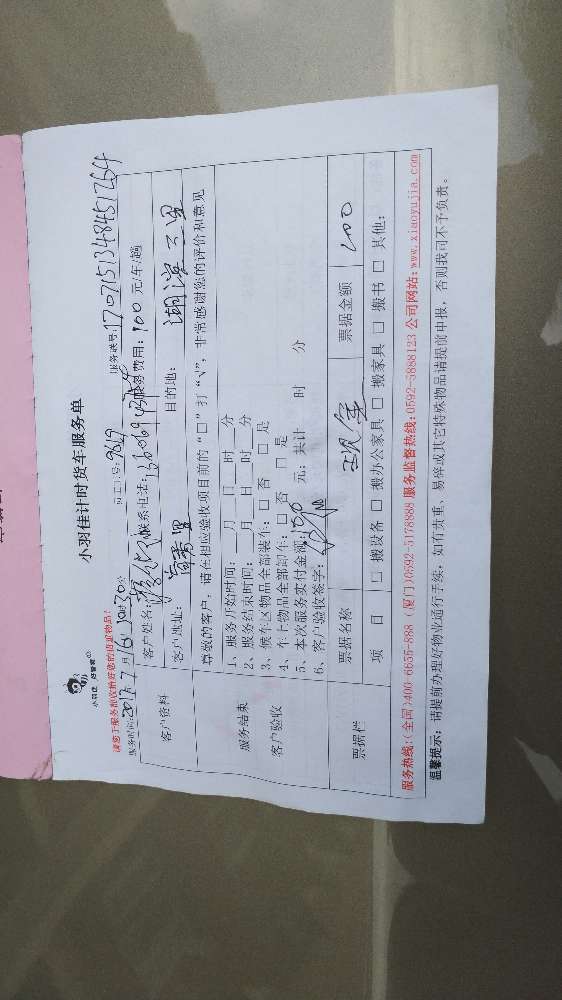 小羽佳 好管家
小羽佳计时货车服务单
请您于服务前收拾好您的贵重物品!
员工工号: 9619 服务编号: 1707151348451764
服务时间: 2017年7月16日 10时30分
客户资料
客户姓名: 联系电话: 服务费用: 100 元/车/趟
客户地址: 目的地: 湖滨三里
服务结束
客户验收
尊敬的客户, 请在相应验收项目前的“□”打“√”, 非常感谢您的评价和意见
1、服务开始时间: 月 日 时 分
2、服务结束时间: 月 日 时 分
3、候车区物品全部装车: □ 否 □ 是
4、车上物品全部卸车: □ 否 □ 是
5、本次服务实付金额: 100 元; 共计 时 分
6、客户验收签字:
票据栏
票据名称 现金 票据金额 100
项 目 □ 搬设备 □ 搬办公家具 □ 搬家具 □ 搬书 □ 其他:
服务热线: (全国)400-6655-888 (厦门)0592-5178888 服务监督热线:0592-5888123 公司网站: www.xiaoyujia.com
温馨提示: 请提前办理好物业通行手续, 如有贵重、易碎或其它特殊物品请提前申报, 否则我司不予负责。